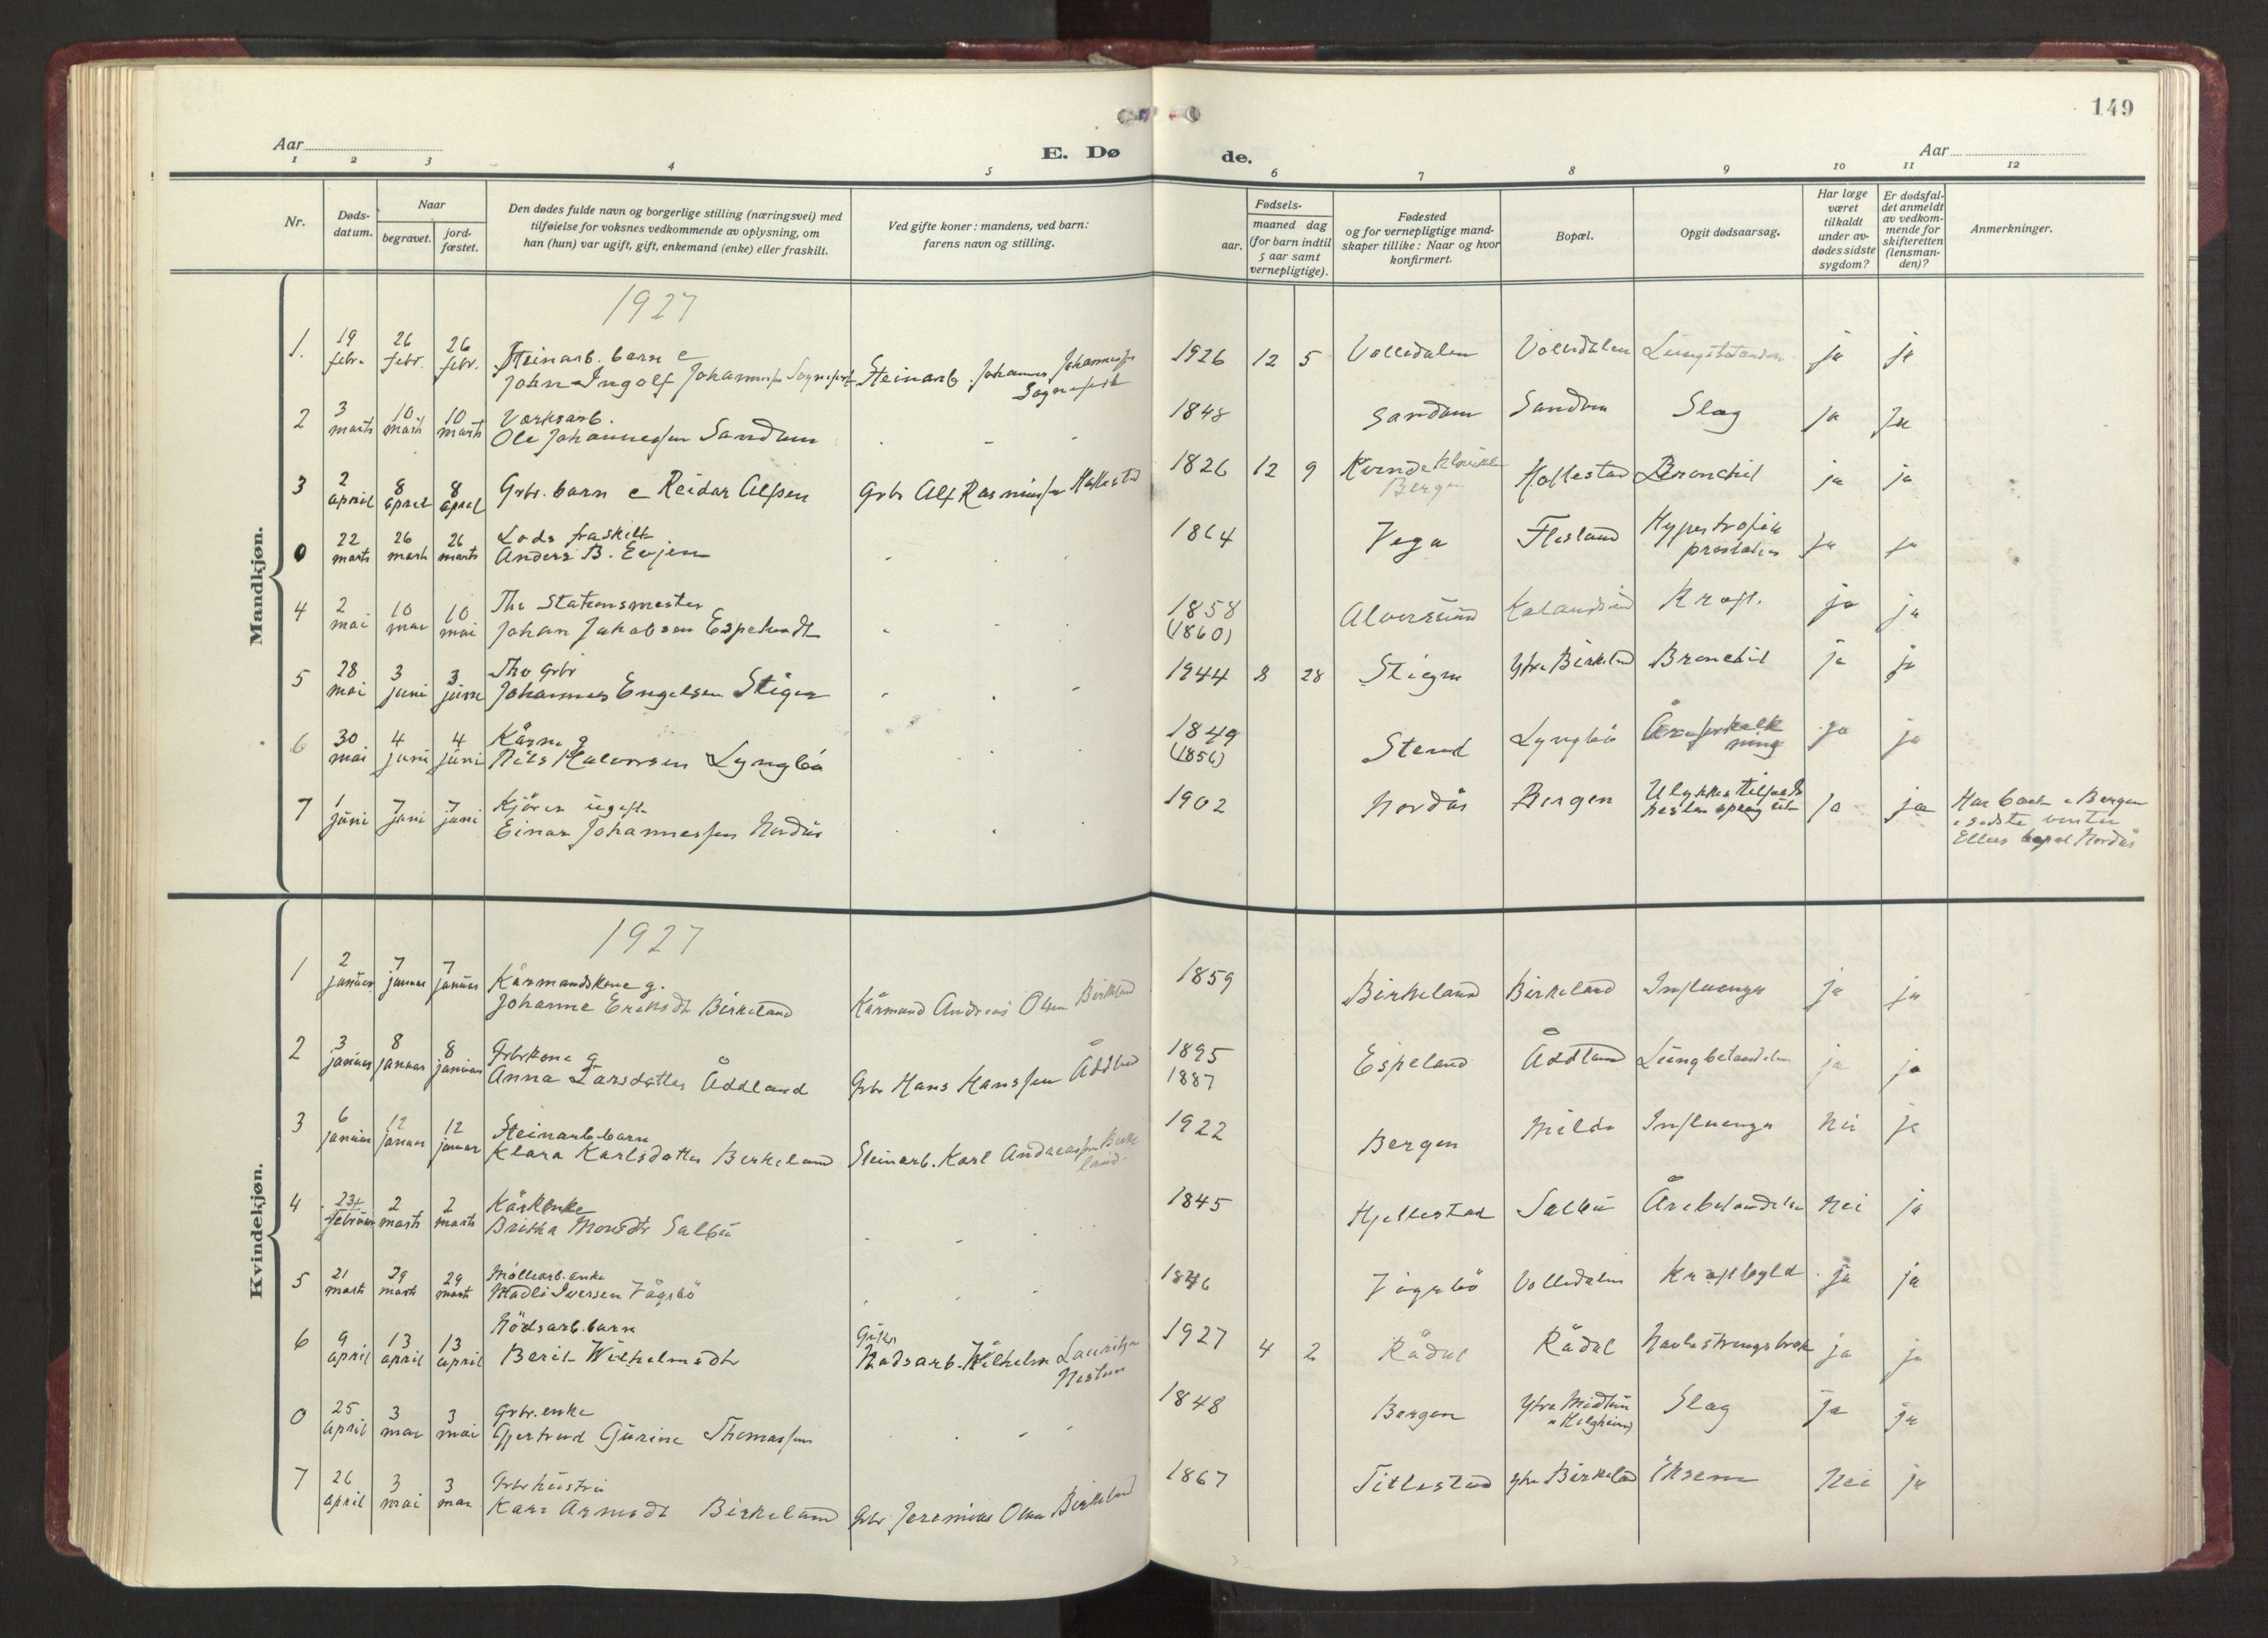 149
Aar
E. Dø de.
Aar
1 2 3 4 5 6 7 8 9 10 11 12
Nr.
Døds-
datum.
Naar
begravet.
jord-
fæstet.
Den dødes fulde navn og borgerlige stilling (næringsvei) med
tilføielse for voksnes vedkommende av oplysning, om
han (hun) var ugift, gift, enkemand (enke) eller fraskilt.
Ved gifte koner: mandens, ved barn:
farens navn og stilling.
Fødsels-
aar.
maaned dag
(for barn indtil
5 aar samt
vernepligtige).
Fødested
og for vernepligtige mand-
skaper tillike: Naar og hvor
konfirmert.
Bopæl.
Opgit dødsaarsag.
Har læge
været
tilkaldt
under av-
dødes sidste
sygdom?
Er dødsfal-
det anmeldt
av vedkom-
mende for
skifteretten
(lensman-
den)?
Anmerkninger.
Mandkjøn.
1927
1. 19 febr. 26 febr. 26 febr. Steinarb. barn e
John Ingolf Johannessen Steinarb. Johannes Johannessen
1926 12 5 Volledalen Volledalen ja ja
2 3 marts 10 marts 10 marts
Ole Johannessen Sandven - - - 1848 Sandven Slag ja ja
3 2 april 8 april 8 april Grbr. barn e Reidar Alfsen Grbr Alf Rasmussen Hollestad 1826 12 9
Bergen Hollestad Bronchit ja ja
0 22 marts 26 marts 26 marts Lods fraskilt
Anders B. Evjen - - - 1864 Vega Flesland Hypertrofia
prostates ja ja
4 2 mai 10 mai 10 mai Fhv Stationsmester
Johan Jakobsen - - - 1858
(1860) Alversund Kalandseid Kræft. ja ja
5 28 mai 3 juni 3 juni Fhv Grbr
Johannes Engelsen Stigen - - - 1944 8 28 Stigen Ytre Birkeland Bronchit ja ja
6 30 mai 4 juni 4 juni Kårm. g
Nils Halvorsen Lyngbö 1849
(1856) Stend Lyngbö Åreforkalk
ning ja ja
7 1 juni 7 juni 7 juni Kjörer ugift
Einar Johannessen Nordås 1902 Nordås Bergen Ulykkestilfælde
hesten sprang ut ja ja Har boet i Bergen
i sidste vinter
Ellers bopæl Nordås
Kvindekjøn.
1927
1 2 januar 7 januar 7 januar Kårmandskone g.
Johanne Eriksdt Birkeland Kårmand Andreas Olsen Birkeland 1859 Birkeland Birkeland Influenza ja ja
2 3 januar 8 januar 8 januar Grbrkone g
Anna Larsdatter Åddland Grbr Hans Hanssen Åddland 1895
1887 Espeland Åddland Lungbetændelse ja ja
3 6 januar 12 januar 12 januar Steinarb barn
Klara Karlsdatter Birkeland Steinarb. Karl Andreassen Birke
land. 1922 Bergen Milde Influenza Nei ja
4 23/ februar 2 marts 2 marts Kårenke
Britha Monsdtr Salbu - - - 1845 Hjellestad Salbu Årebetændelse Nei ja
5 21 marts 29 marts 29 marts Möllearb. enke
Madli Iversen Vågsbö 1846 Vågsbö Volledalen Kræftbyld ja ja
6 9 april 13 april 13 april Nödsarb. barn
Berit Wilhelmsdtr Nödsarb. Wilhelm Lauritzen
Nestun 1927 4 2 Rådal Rådal Navlestrengsbrok ja ja
0 25 april 3 mai 3 mai Grbr. enke
Gjertrud Gurine Thomassen - - 1848 Bergen Ytre Midtun
Slag ja ja
7 26 april 3 mai 3 mai Grbr hustru
Kari Arnesdt Birkeland Grbr Jeremias Olsen Birkeland 1867 Titlestad Ytre Birkeland Eksem Nei ja